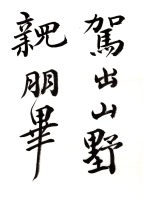 駕出山墅
親朋畢